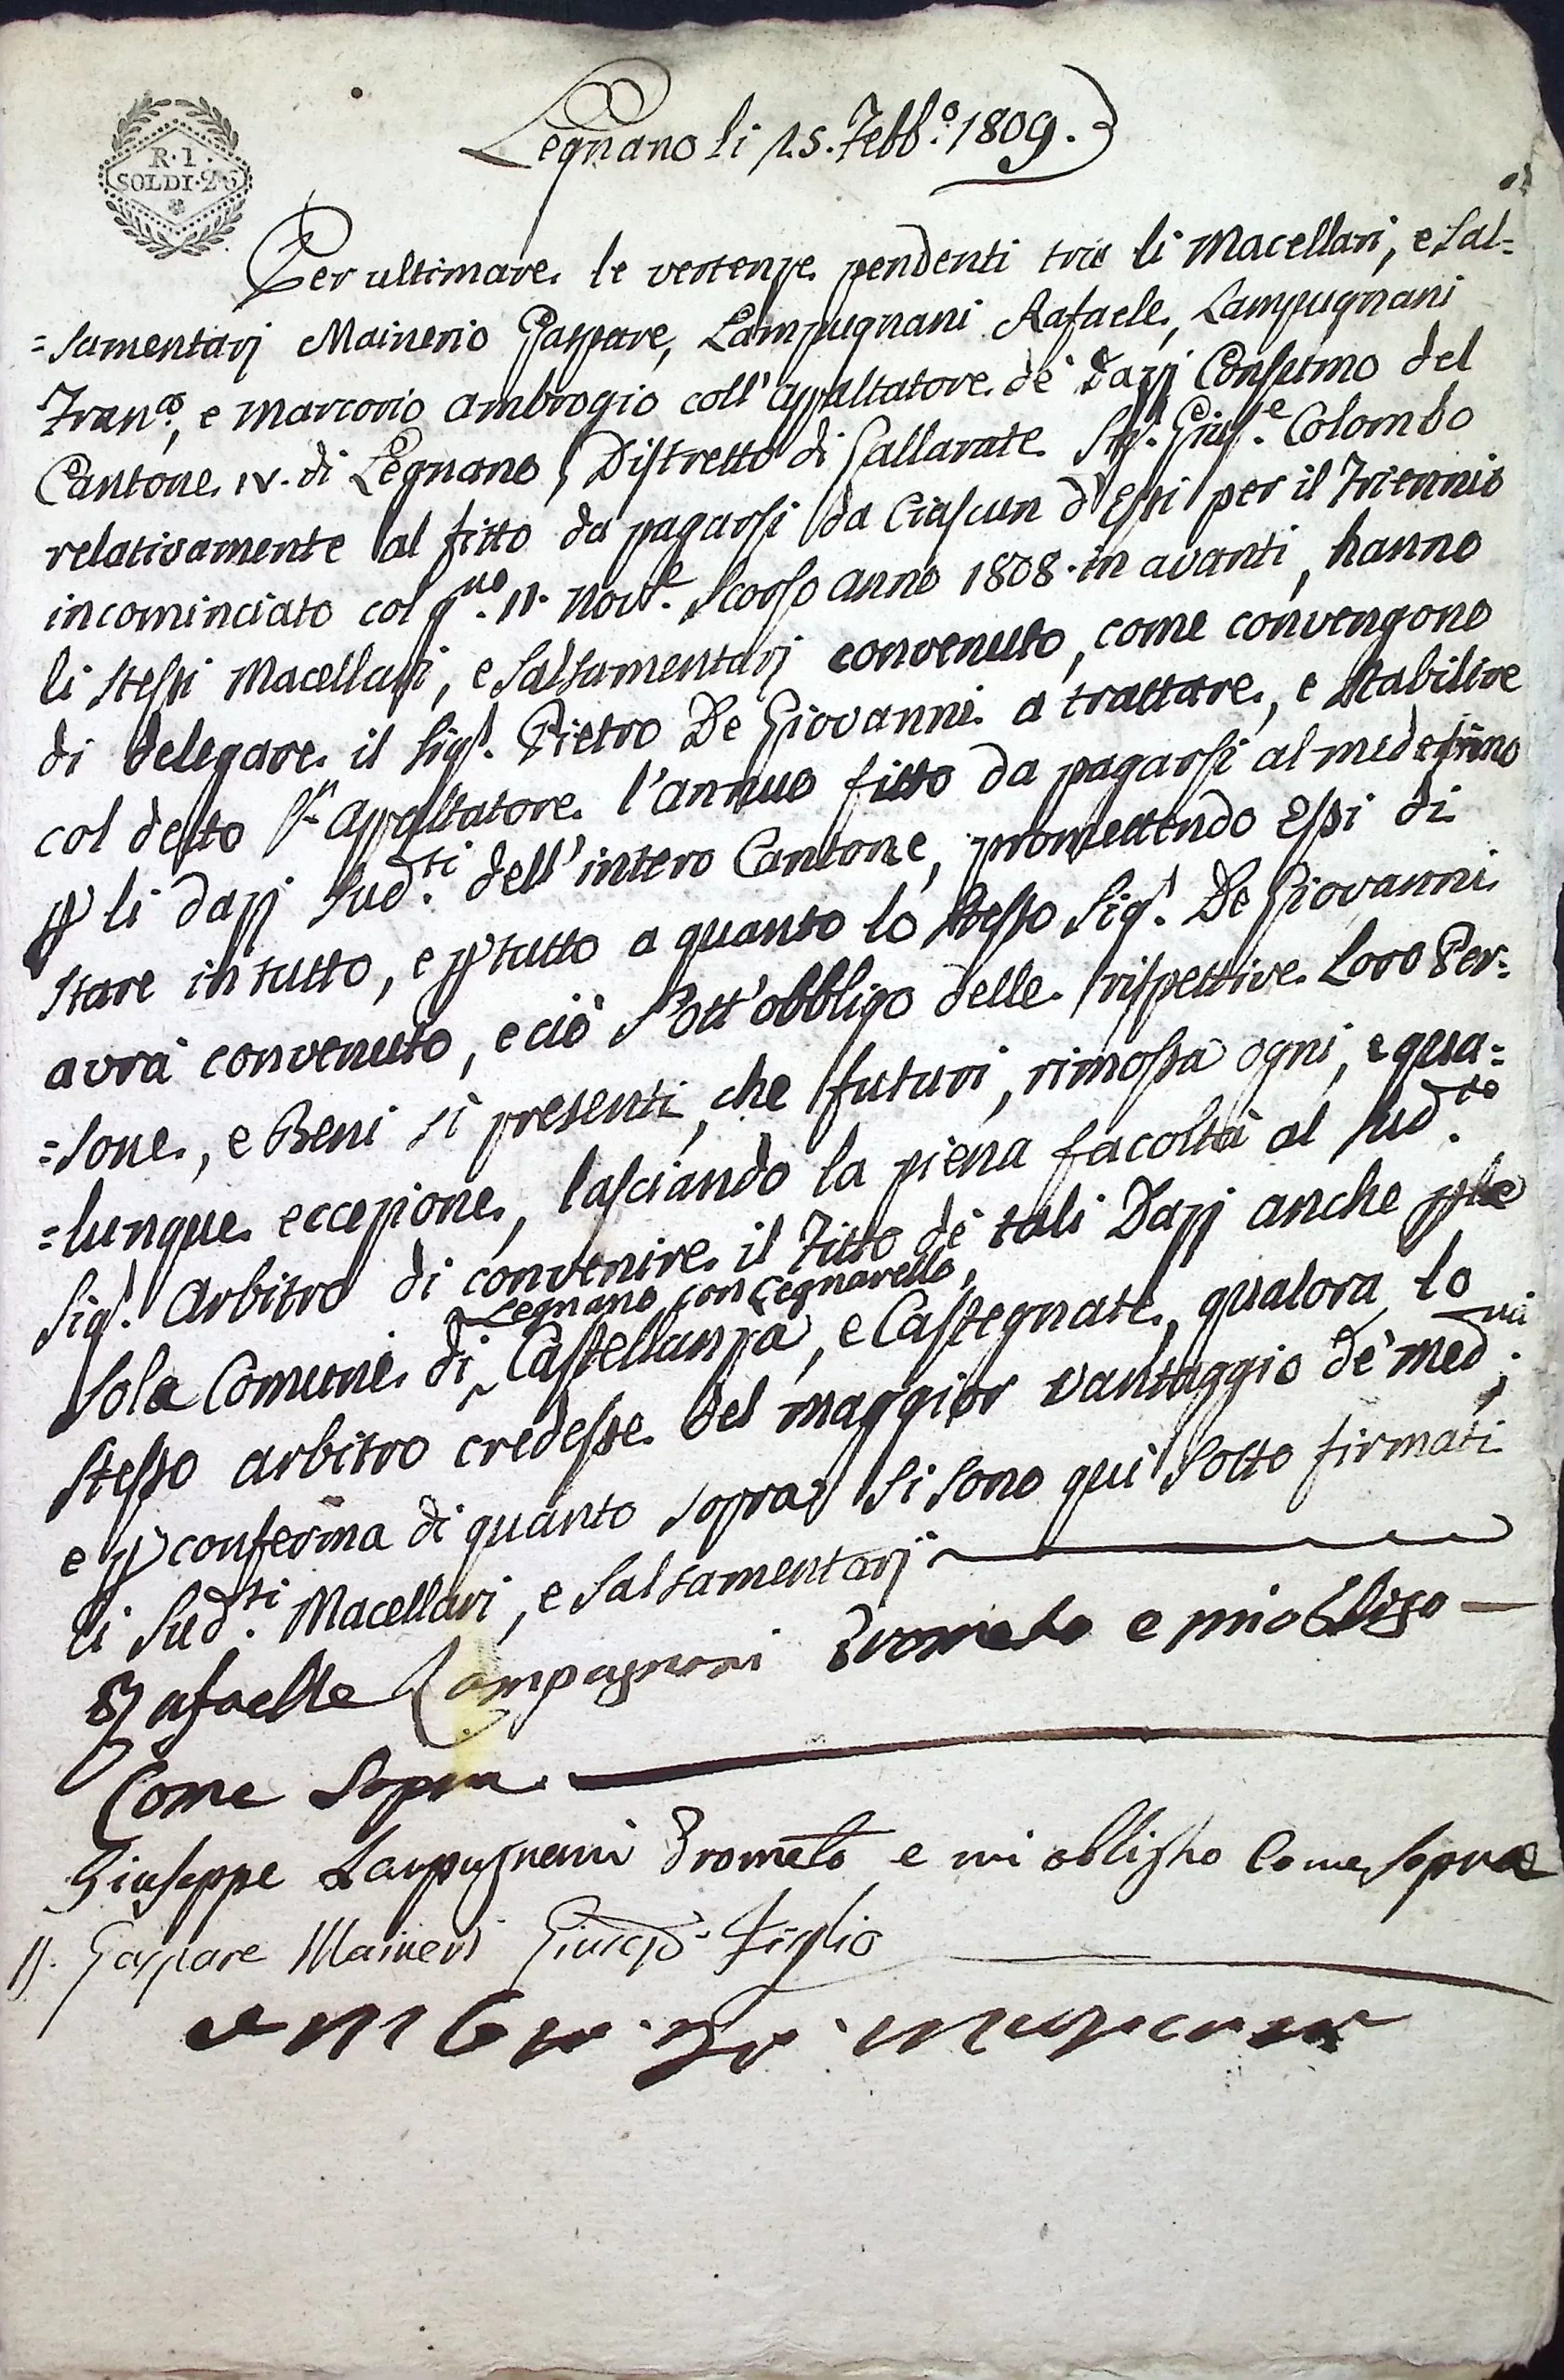 R. I.
SOLDI. 26
Legnano li 15. Febb.o 1809.
Per ultimare le vertenze pendenti tra li Macellari, e Sal=
=sumentarj Mainerio Gaspare, Lampugnani Rafaele, Lampugnani
Fran.co, e Marcorio Ambrogio coll'appaltatore de' Dazj Consumo del
Cantone IV. di Legnano, Distretto di Gallarate Sig.r Gius.e Colombo
relativamente al fitto da pagarsi da Ciascun d'Essi per il Triennio
incominciato col g.no 11. Nov.e scorso anno 1808. in avanti, hanno
li stessi Macellari, e Salsamentarj convenuto, come convengono
di delegare il Sig.r Pietro De Giovanni a trattare, e stabilire
col detto S.r Appaltatore l'annuo fitto da pagarsi al medesimo
p li dazj sud.ti dell'intero Cantone, promettendo Essi di
stare in tutto, e p tutto a quanto lo stesso Sig.r De Giovanni
avrà convenuto, e ciò sott'obbligo delle rispettive Loro Per=
=sone, e Beni sì presenti, che futuri, rimossa ogni, e qua=
=lunque eccezione, lasciando la piena facoltà al sud.to
Sig.r Arbitro di convenire il Fitto de' tali Dazj anche p le
Legnano con Legnarello,
sole Comuni di Castellanza, e Castegnate, qualora lo
stesso arbitro credesse del maggior vantaggio de' med.mi;
e p conferma di quanto sopra si sono qui sotto firmati
li Sud.ti Macellari, e Salsamentarj
Rafaelle Lampugnani Prometo e mi obligo
Come Sopra
Giuseppe Lampugnani Prometo e mi obligho Come Sopra
Gaspare Maineri Figlio